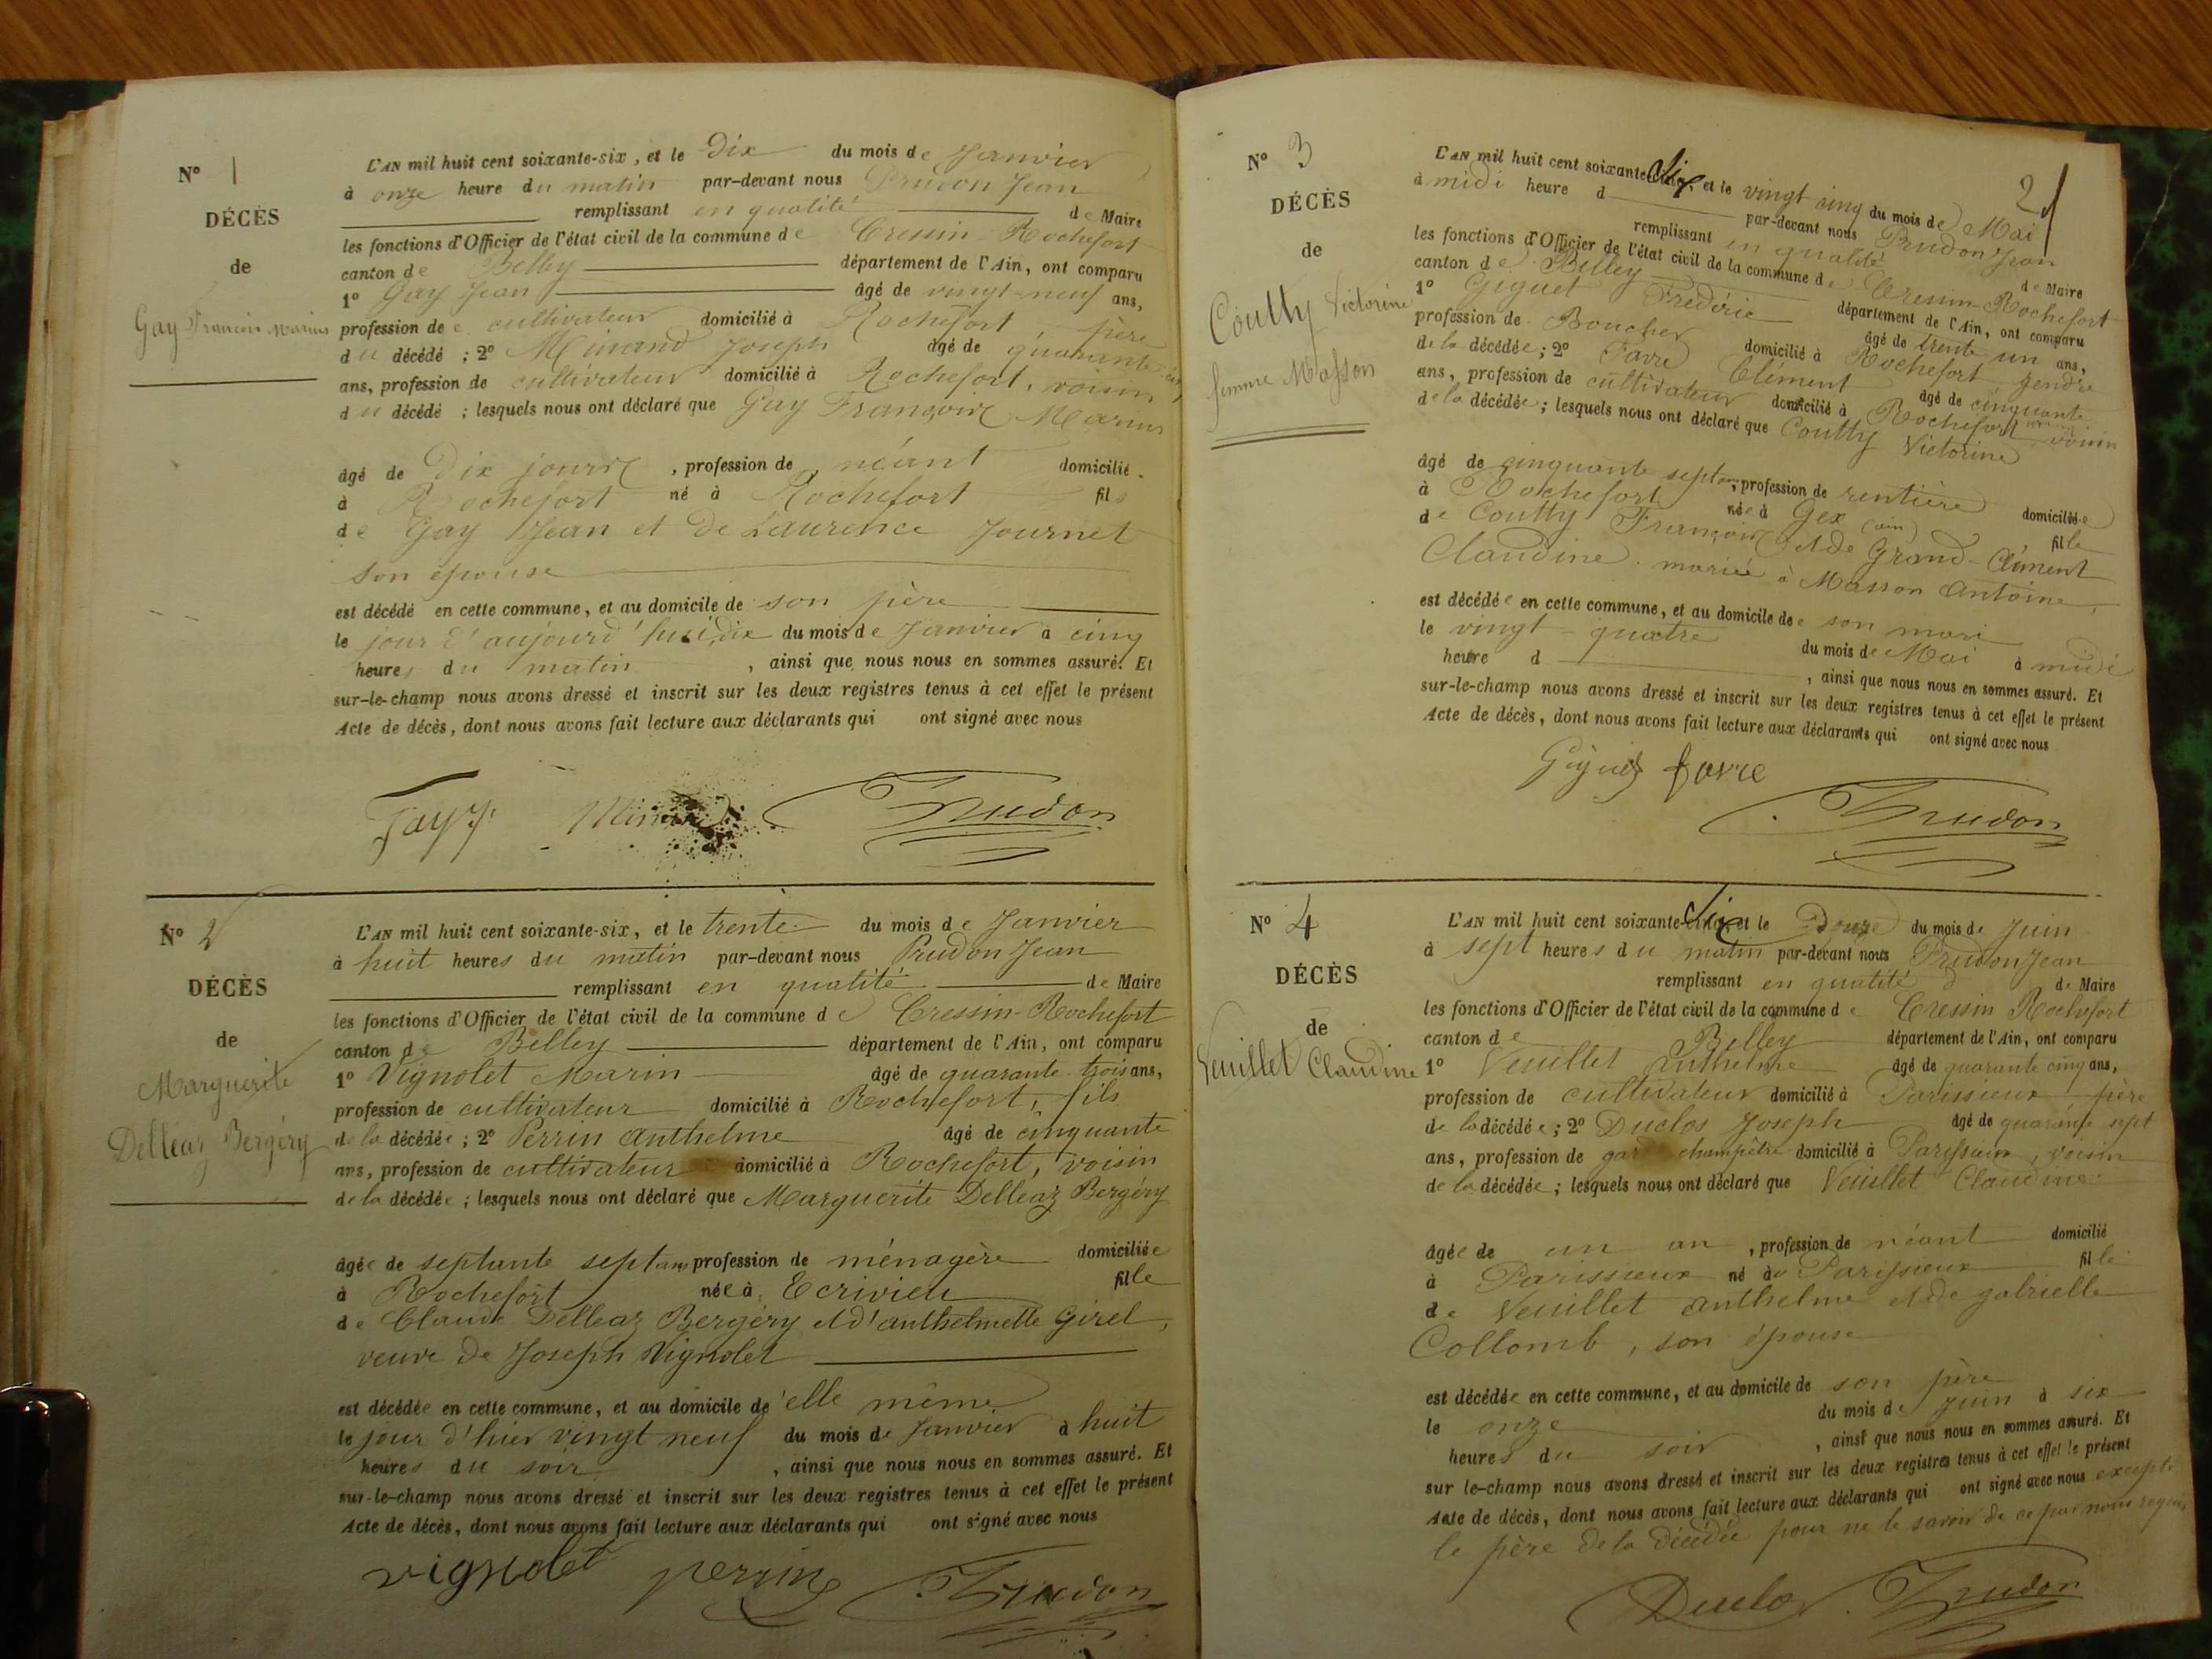 N° 1
DÉCÈS
de
Gay François Marius
L'AN mil huit cent soixante-six, et le Dix du mois de Janvier
à onze heure du matin par-devant nous Prudon Jean
remplissant en qualité de Maire
les fonctions d'Officier de l'état civil de la commune de Cressin-Rochefort
canton de Belley département de l'Ain, ont comparu
1° Gay Jean âgé de vingt-neuf ans,
profession de cultivateur domicilié à Rochefort, père
du décédé ; 2° Minand Joseph âgé de quarante
ans, profession de cultivateur domicilié à Rochefort, voisin
du décédé ; lesquels nous ont déclaré que Gay François Marius
âgé de Dix jours, profession de néant domicilié
à Rochefort né à Rochefort fils
de Gay Jean et de Laurence Journet
son épouse
est décédé en cette commune, et au domicile de son père
le jour d'aujourd'hui, dix du mois de Janvier à cinq
heures du matin, ainsi que nous nous en sommes assuré. Et
sur-le-champ nous avons dressé et inscrit sur les deux registres tenus à cet effet le présent
Acte de décès, dont nous avons fait lecture aux déclarants qui ont signé avec nous
Gay J. Minand Prudon
N° 2
DÉCÈS
de
Marguerite
Delléaz Bergéry
L'AN mil huit cent soixante-six, et le trente du mois de Janvier
à huit heures du matin par-devant nous Prudon Jean
remplissant en qualité de Maire
les fonctions d'Officier de l'état civil de la commune de Cressin-Rochefort
canton de Belley département de l'Ain, ont comparu
1° Vignolet Marin âgé de quarante trois ans,
profession de cultivateur domicilié à Rochefort, fils
de la décédée ; 2° Perrin Anthelme âgé de cinquante
ans, profession de cultivateur domicilié à Rochefort, voisin
de la décédée ; lesquels nous ont déclaré que Marguerite Delléaz Bergéry
âgée de septante sept ans profession de ménagère domiciliée
à Rochefort née à Ecrivieu fille
de Claude Delleaz Bergéry et d'anthelmette Girel,
veuve de Joseph Vignolet
est décédée en cette commune, et au domicile de elle même
le jour d'hier vingt neuf du mois de Janvier à huit
heures du soir, ainsi que nous nous en sommes assuré. Et
sur-le-champ nous avons dressé et inscrit sur les deux registres tenus à cet effet le présent
Acte de décès, dont nous avons fait lecture aux déclarants qui ont signé avec nous
vignolet perrin Prudon
2
N° 3
DÉCÈS
de
Coutty Victorine
femme Masson
L'AN mil huit cent soixante-Six, et le vingt cinq du mois de Mai
à midi heure d par-devant nous Prudon Jean
remplissant en qualité de Maire
les fonctions d'Officier de l'état civil de la commune de Cressin-Rochefort
canton de Belley département de l'Ain, ont comparu
1° Geguet Frédéric âgé de trente un ans,
profession de Boucher domicilié à Rochefort, gendre
de la décédée ; 2° Favre Clément âgé de cinquante
ans, profession de cultivateur domicilié à Rochefort voisin
de la décédée ; lesquels nous ont déclaré que Coutty Victorine
âgé de cinquante sept ans, profession de rentière domiciliée
à Rochefort née à Gex (ain) fille
de Coutty François et de Grand-Clément
Claudine. mariée à Masson Antoine,
est décédée en cette commune, et au domicile de son mari
le vingt-quatre du mois de Mai à midi
heure d, ainsi que nous nous en sommes assuré. Et
sur-le-champ nous avons dressé et inscrit sur les deux registres tenus à cet effet le présent
Acte de décès, dont nous avons fait lecture aux déclarants qui ont signé avec nous
favre
Prudon
N° 4
DÉCÈS
de
Veuillet Claudine
L'AN mil huit cent soixante-Six, et le Douze du mois de Juin
à sept heures du matin par-devant nous Prudon Jean
remplissant en qualité de Maire
les fonctions d'Officier de l'état civil de la commune de Cressin Rochefort
canton de Belley département de l'Ain, ont comparu
1° Veuillet Anthelme âgé de quarante cinq ans,
profession de cultivateur domicilié à Parissieux père
de la décédée ; 2° Duclos Joseph âgé de quarante sept
ans, profession de garde champêtre domicilié à Parissieux, voisin
de la décédée ; lesquels nous ont déclaré que Veuillet Claudine
âgée de un an, profession de néant domicilié
à Parissieux né à Parissieux fille
de Veuillet Anthelme et de gabrielle
Collomb, son épouse
est décédée en cette commune, et au domicile de son père
le onze du mois de Juin à six
heures du soir, ainsi que nous nous en sommes assuré. Et
sur le-champ nous avons dressé et inscrit sur les deux registres tenus à cet effet le présent
Acte de décès, dont nous avons fait lecture aux déclarants qui ont signé avec nous excepté
le père de la décédée pour ne le savoir de ce par nous requis
Duclos Prudon